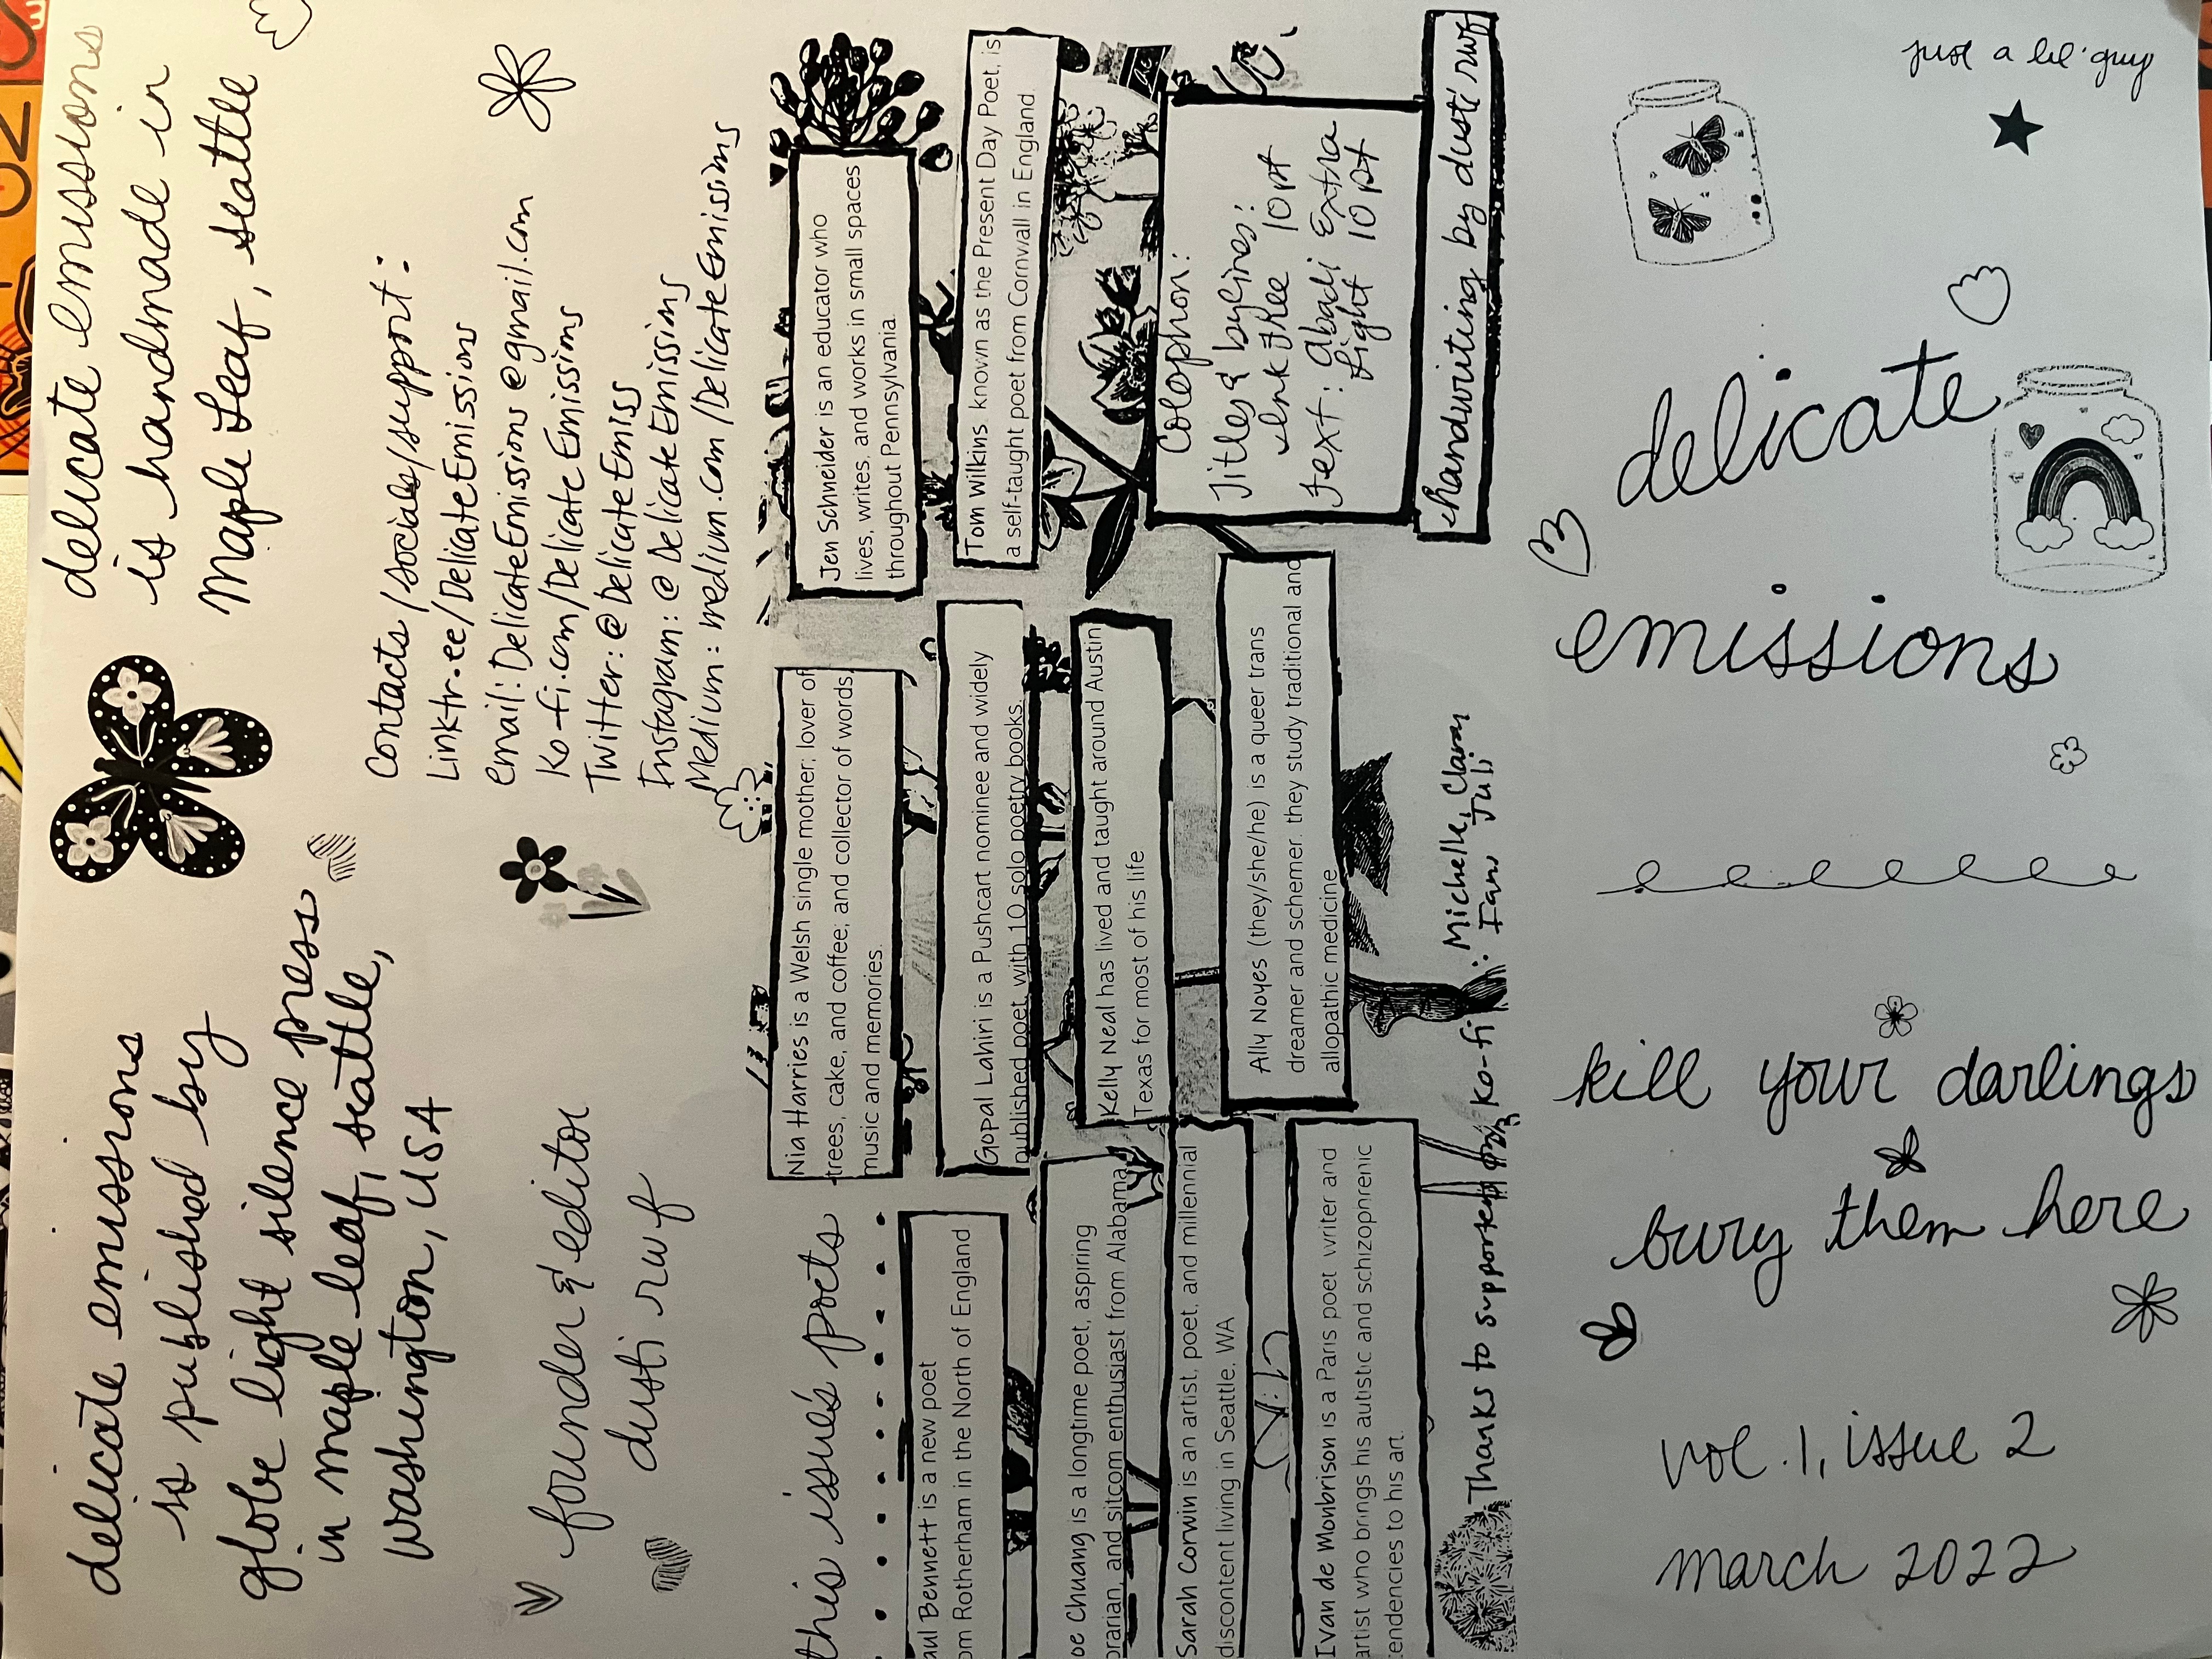 delicate emissions
is published by
globe light silence press
in maple leaf, seattle,
washington, USA
founder & editor
dusti rwf
delicate emissions
is handmade in
Maple Leaf, seattle
Contacts/socials/support:
Linktr.ee/DelicateEmissions
email: DelicateEmissions@gmail.com
Ko-fi.com/DelicateEmissions
Twitter: @DelicateEmiss
Instagram: @DelicateEmissions
Medium: medium.com/DelicateEmissions
this issue's poets
aul Bennett is a new poet
om Rotherham in the North of England
oe Chuang is a longtime poet, aspiring
brarian, and sitcom enthusiast from Alabama
Sarah Corwin is an artist, poet, and millennial
discontent living in Seattle, WA
Ivan de Monbrison is a Paris poet writer and
artist who brings his autistic and schizophrenic
tendencies to his art.
Nia Harries is a Welsh single mother; lover of
trees, cake, and coffee, and collector of words,
music and memories.
Gopal Lahiri is a Pushcart nominee and widely
published poet, with 10 solo poetry books.
Kelly Neal has lived and taught around Austin
Texas for most of his life
Ally Noyes (they/she/he) is a queer trans
dreamer and schemer. they study traditional and
allopathic medicine
Jen Schneider is an educator who
lives, writes, and works in small spaces
throughout Pennsylvania.
Tom Wilkins known as the Present Day Poet, is
a self-taught poet from Cornwall in England
Colophon:
Titles & bylines:
Ink Free 10 pt
Text: Abadi Extra
Light 10 pt
handwriting by dusti rwf
Thanks to supporters on Ko-fi: Michelle, Clairm
Fawn Juli
just a lil' guy
delicate
emissions
kill your darlings
bury them here
vol. 1, issue 2
march 2022